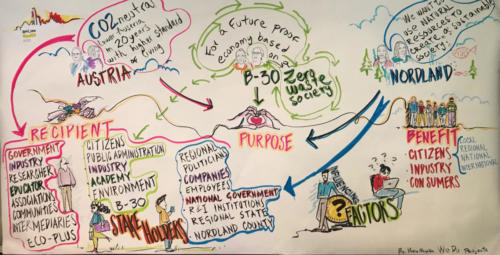 CO2-neutral
Austria
20 years
with higher standard
of living
AUSTRIA
For a Future proof
economy based
on
B-30
Zero
waste
society
We want to
USE NATURAL
RESOURCES TO
create a sustainable
society
NORDLAND
RECIPIENT
GOVERNMENT
INDUSTRY
RESEARCHER
EDUCATOR
ASSOCIATIONS
COMMUNITIES
INTERMEDIARIES
ECO-PLUS
CITIZENS
PUBLIC ADMINISTRATION
INDUSTRY
ACADEMY
ENVIRONMENT
B-30
STAKEHOLDERS
PURPOSE
REGIONAL
POLITICIAN
COMPANIES
EMPLOYEES
NATIONAL GOVERNMENT
R&I INSTITUTIONS
REGIONAL STATE
NORDLAND COUNTY
?
FACTORS
BENEFIT
CITIZENS
INDUSTRY
CONSUMERS
LOCAL
REGIONAL
NATIONAL
INTERNATIONAL